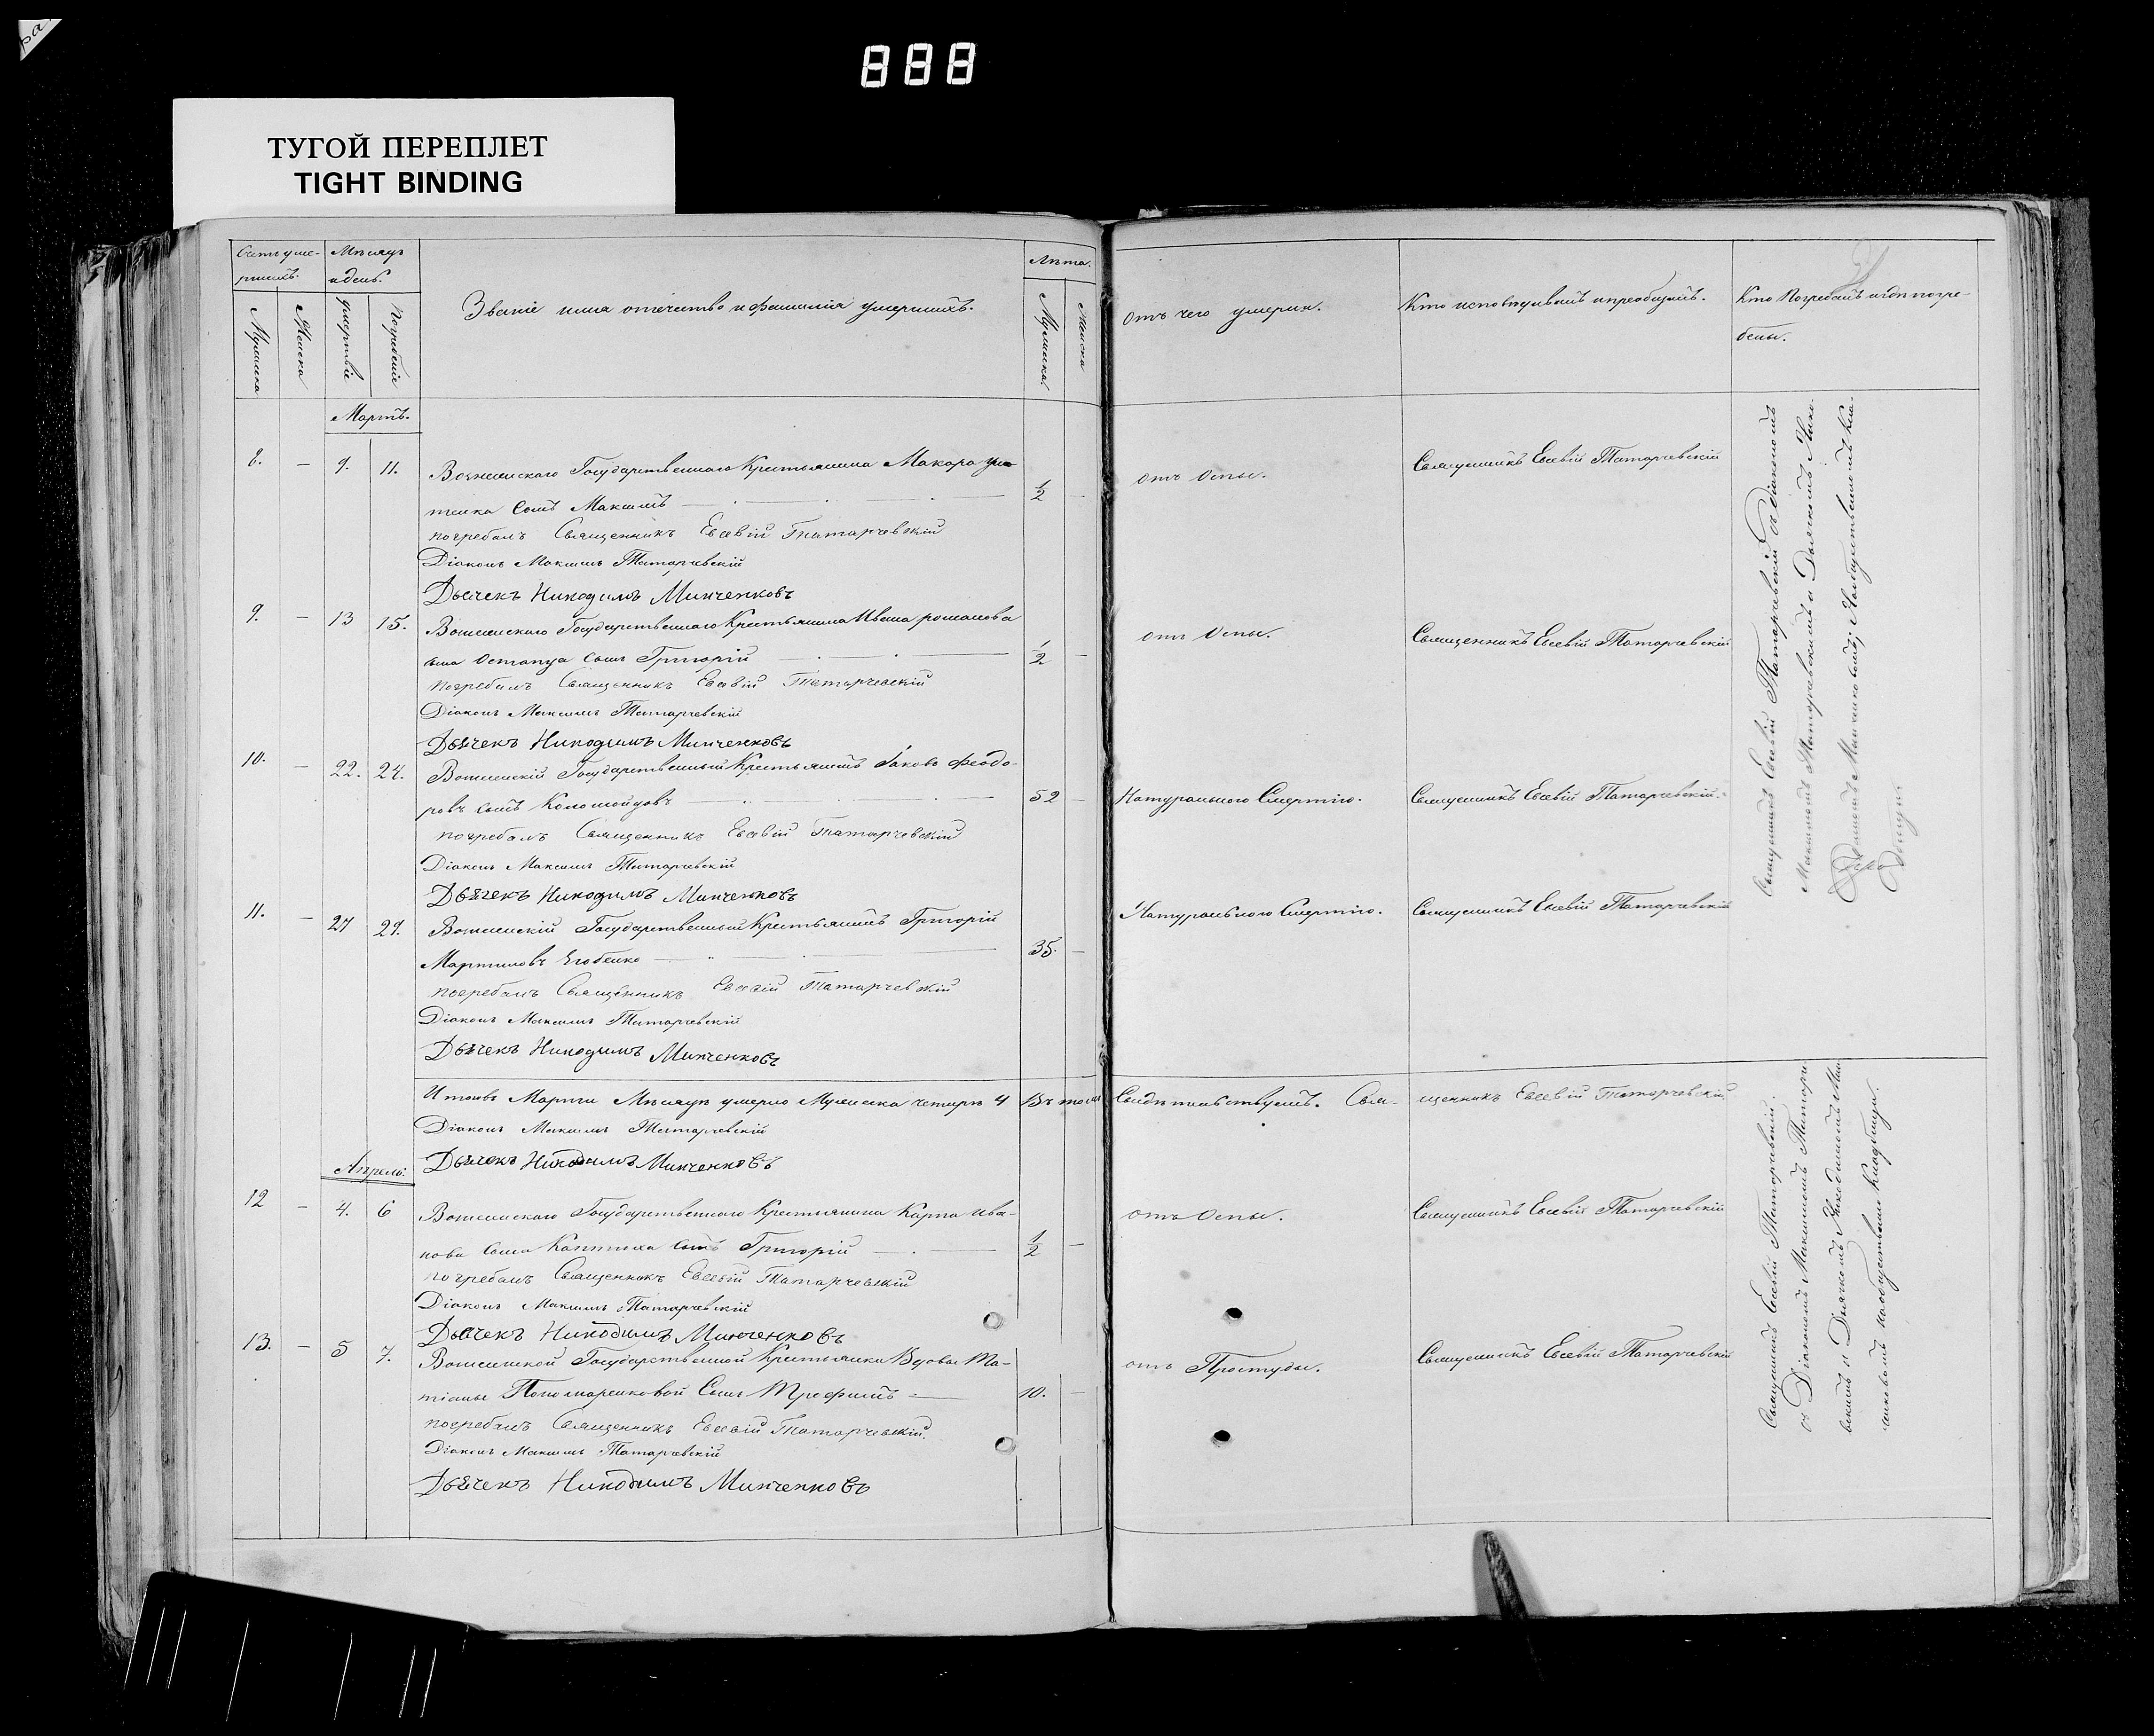 ра
888
ТУГОЙ ПЕРЕПЛЕТ
TIGHT BINDING
Счетъ уме-
ршихъ.
Мѣсяцъ
и день.
Лѣта.
Мужеска
Женска
умертвіе
Погребеніе
Званіе имя отечество и фамилія умершихъ.
Мужеска.
Женска
Отъ чего умерли.
Кто исповѣдывалъ и преобщалъ.
Кто Погребалъ и гдѣ погре-
бены.
Мартъ.
8. — 9. 11. Государственнаго Крестьянина Макара
сынъ Максимъ — ½ —
отъ Оспы.
Священникъ Евсевій Татарчевскій
погребалъ Священникъ Евсевій Татарчевскій
Діаконъ Максимъ Татарчевскій
Дьячекъ Никодимъ Минченковъ
9. — 13 15. Государственнаго Крестьянина Ивана романова
сына Остапца сынъ Григорій — ½ —
отъ Оспы.
Священникъ Евсевій Татарчевскій
погребалъ Священникъ Евсевій Татарчевскій
Діаконъ Максимъ Татарчевскій
Дьячекъ Никодимъ Минченковъ
10. — 22. 24. Государственный Крестьянинъ Іаковъ Феодо-
ровъ сынъ Коломойцовъ — 52 —
Натуральною Смертію.
Священникъ Евсевій Татарчевскій
погребалъ Священникъ Евсевій Татарчевскій
Діаконъ Максимъ Татарчевскій
Дьячекъ Никодимъ Минченковъ
11. — 27 29. Государственный Крестьянинъ Григорій
Мартиновъ — 35. —
Натуральною Смертію.
Священникъ Евсевій Татарчевскій
погребалъ Священникъ Евсевій Татарчевскій
Діаконъ Максимъ Татарчевскій
Дьячекъ Никодимъ Минченковъ
Священникъ Евсевій Татарчевскій съ Діакономъ
Максимомъ Татарчевскимъ и Дьячкомъ Нико-
димомъ Минченковымъ, На общественномъ Кла-
дбищѣ
Итого въ Марти Мѣсяцѣ умерло Мужеска четыре 4 Въ томъ Свидѣтельствуемъ. Свя- щенникъ Евсевій Татарчевскій
Діаконъ Максимъ Татарчевскій
Дьячекъ Никодимъ Минченковъ
Апрель.
12 — 4. 6 Государственнаго Крестьянина Карпа Ива-
нова сына сынъ Григорій — ½ —
отъ Оспы.
Священникъ Евсевій Татарчевскій
погребалъ Священникъ Евсевій Татарчевскій
Діаконъ Максимъ Татарчевскій
Дьячекъ Никодимъ Минченковъ
13. — 5 7. Государственной Крестьянки Вдовы Та-
тіаны Пономаренковой Сынъ Трефимъ — 10. —
отъ Простуды.
Священникъ Евсевій Татарчевскій
погребалъ Священникъ Евсевій Татарчевскій.
Діаконъ Максимъ Татарчевскій
Дьячекъ Никодимъ Минченковъ
Священникъ Евсевій Татарчевскій.
съ Діакономъ Максимомъ Татарче
вскимъ и Дьячкомъ Никодимомъ Мин
ченковомъ На общественномъ Кладбищѣ.